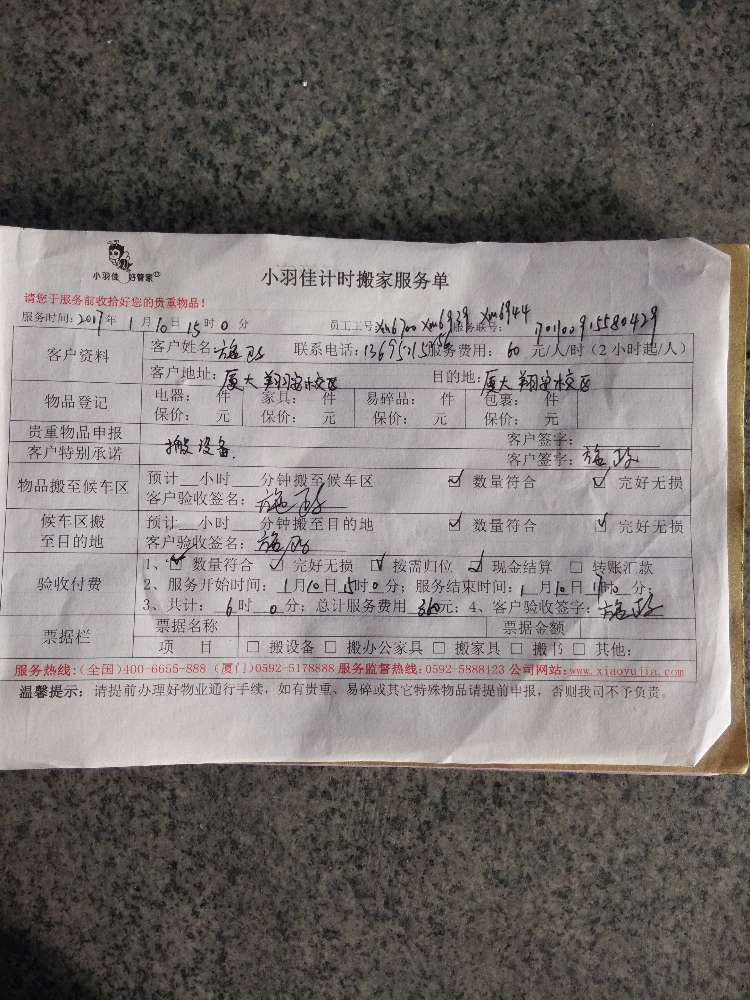 小羽佳 好管家
小羽佳计时搬家服务单
请您于服务前收拾好您的贵重物品!
服务时间:2017年 1月10日15时0分 员工工号:xm6700 xm6939 xm6944 服务联号:
客户资料 客户姓名:施 联系电话: 服务费用:60元/人/时(2小时起/人)
客户地址:厦大翔安校区 目的地:厦大翔安校区
物品登记 电器: 件 家具: 件 易碎品: 件 包裹: 件
保价: 元 保价: 元 保价: 元 保价: 元
贵重物品申报 客户签字:
客户特别承诺 搬设备. 客户签字:施
物品搬至候车区 预计__小时__分钟搬至候车区 ☑ 数量符合 ☑ 完好无损
客户验收签名:施
候车区搬至目的地 预计__小时__分钟搬至目的地 ☑ 数量符合 ☑ 完好无损
客户验收签名:施
验收付费 1、☑ 数量符合 ☑ 完好无损 ☑ 按需归位 ☑ 现金结算 □ 转账汇款
2、服务开始时间:1月10日15时0分;服务结束时间:1月10日17时0分;
3、共计:6时0分;总计服务费用360元;4、客户验收签字:施
票据栏 票据名称 票据金额
项 目 □ 搬设备 □ 搬办公家具 □ 搬家具 □ 搬书 □ 其他:
服务热线:(全国)400-6655-888 (厦门)0592-5178888 服务监督热线:0592-5888123 公司网站:www.xiaoyujia.com
温馨提示:请提前办理好物业通行手续,如有贵重、易碎或其它特殊物品请提前申报,否则我司不予负责。